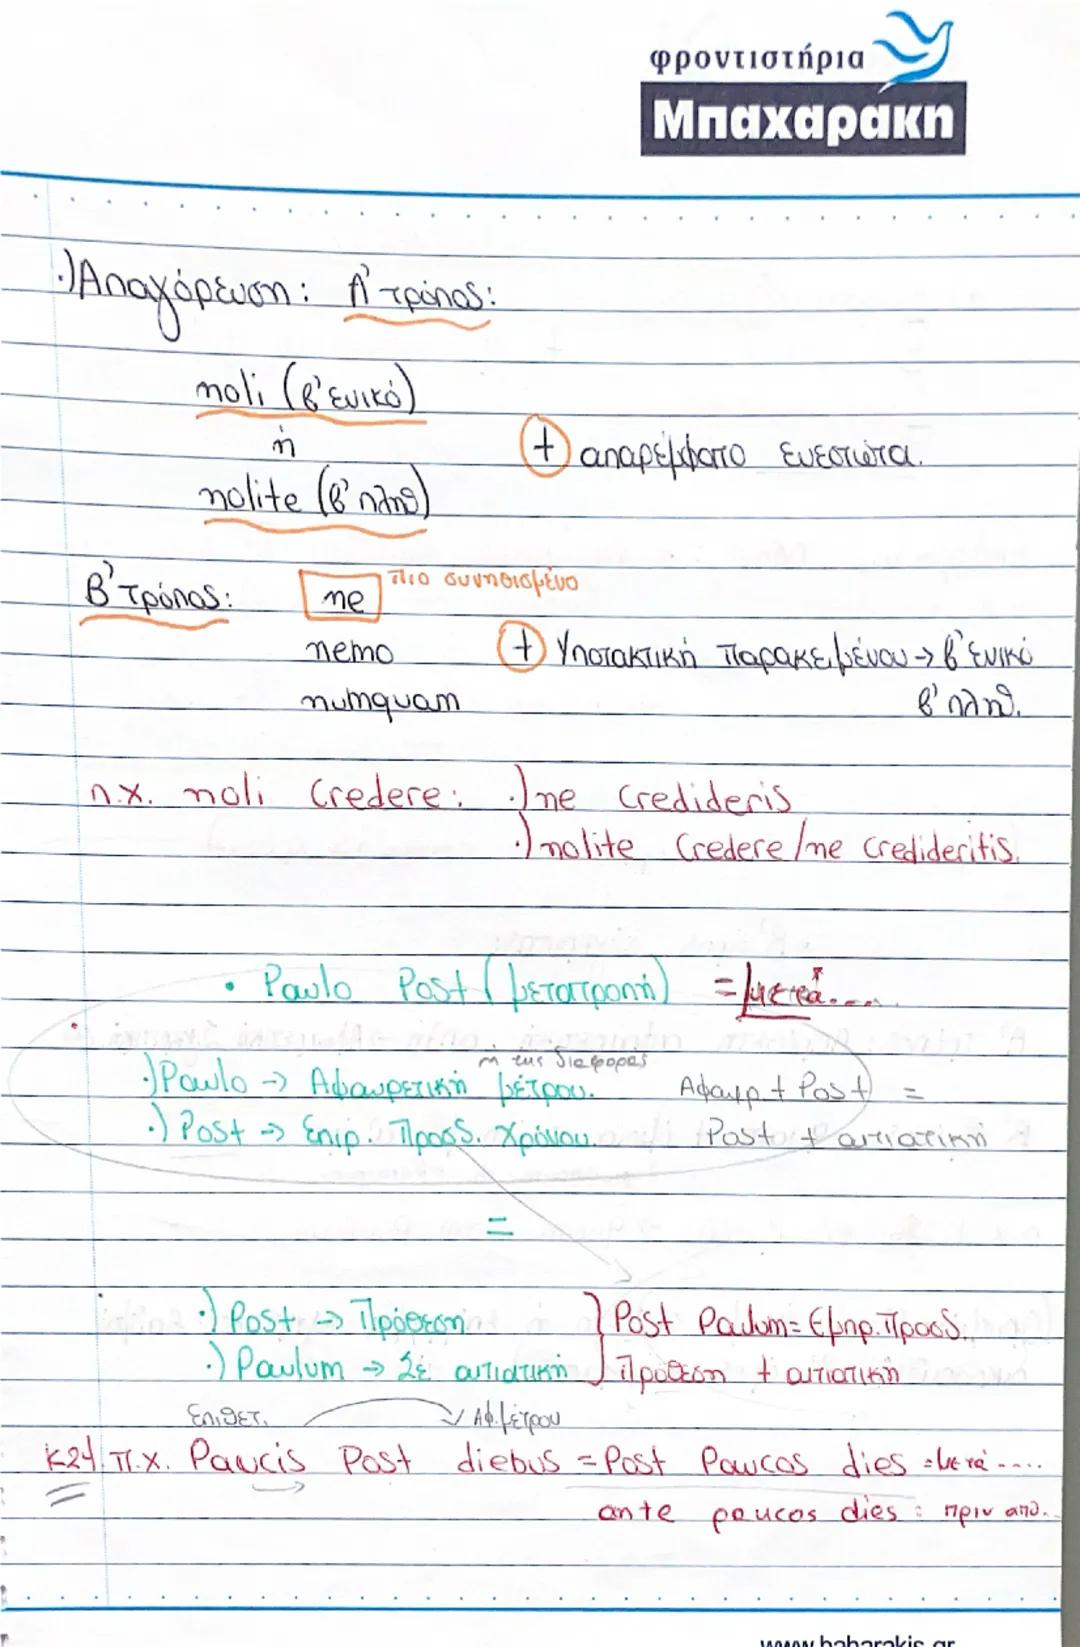 φροντιστήρια
Μπαχαράκη
·) Απαγόρευση: Α' τρόπος:
noli (β' ενικό)
ή
+ απαρέμφατο ενεστώτα.
nolite (β' πληθ)
Β' τρόπος: ne πιο συνηθισμένο
nemo + Υποτακτική Παρακειμένου → β' ενικό
numquam β' πληθ.
π.χ. noli credere: ·) ne credideris
·) nolite credere / ne credideritis.
• Paulo Post (μετατροπή) = μετά....
ή της διαφοράς
·) Paulo → Αφαιρετική μέτρου. Αφαιρ + Post =
·) Post → Επιρ. Προσδ. Χρόνου. Post + αιτιατική
=
·) Post → Πρόθεση } Post Paulum = Εμπρ. Προσδ.
·) Paulum → Σε αιτιατική Πρόθεση + αιτιατική
Επιθετ. Αφ. μέτρου
Κ24 π.χ. Paucis Post diebus = Post Paucos dies = μετά ....
ante paucos dies : πριν από..
www.baharakis.gr